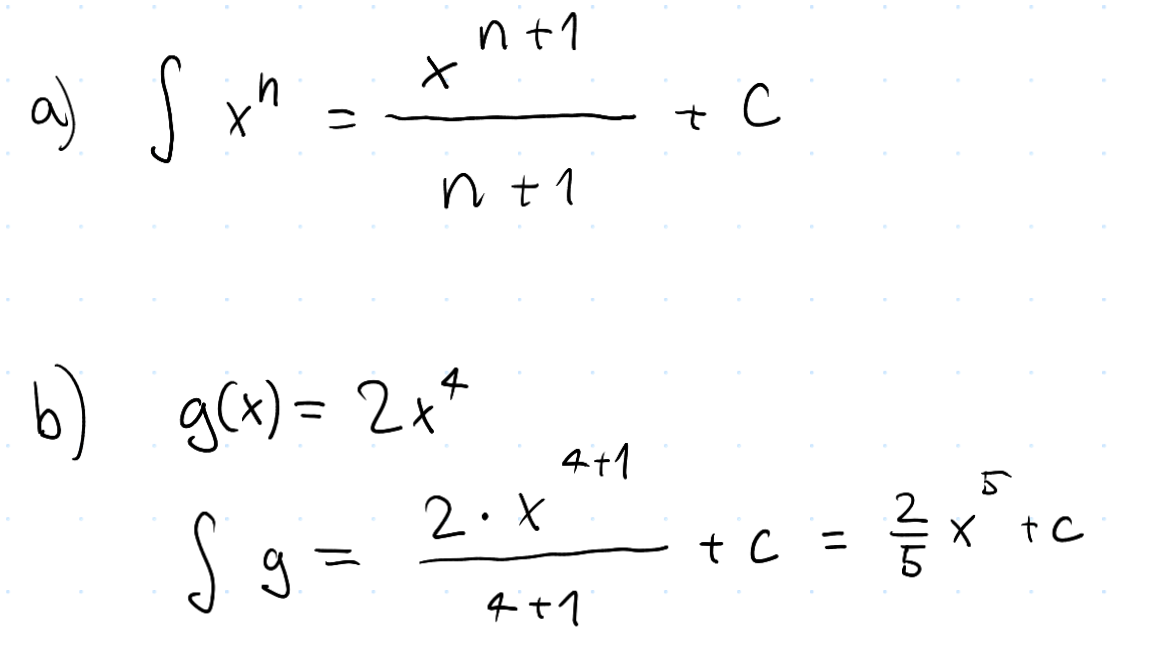 a) ∫ xⁿ = xⁿ⁺¹ / n+1 + C
b) g(x) = 2x⁴
∫ g = 2·x⁴⁺¹ / 4+1 + c = 2/5 x⁵ + c